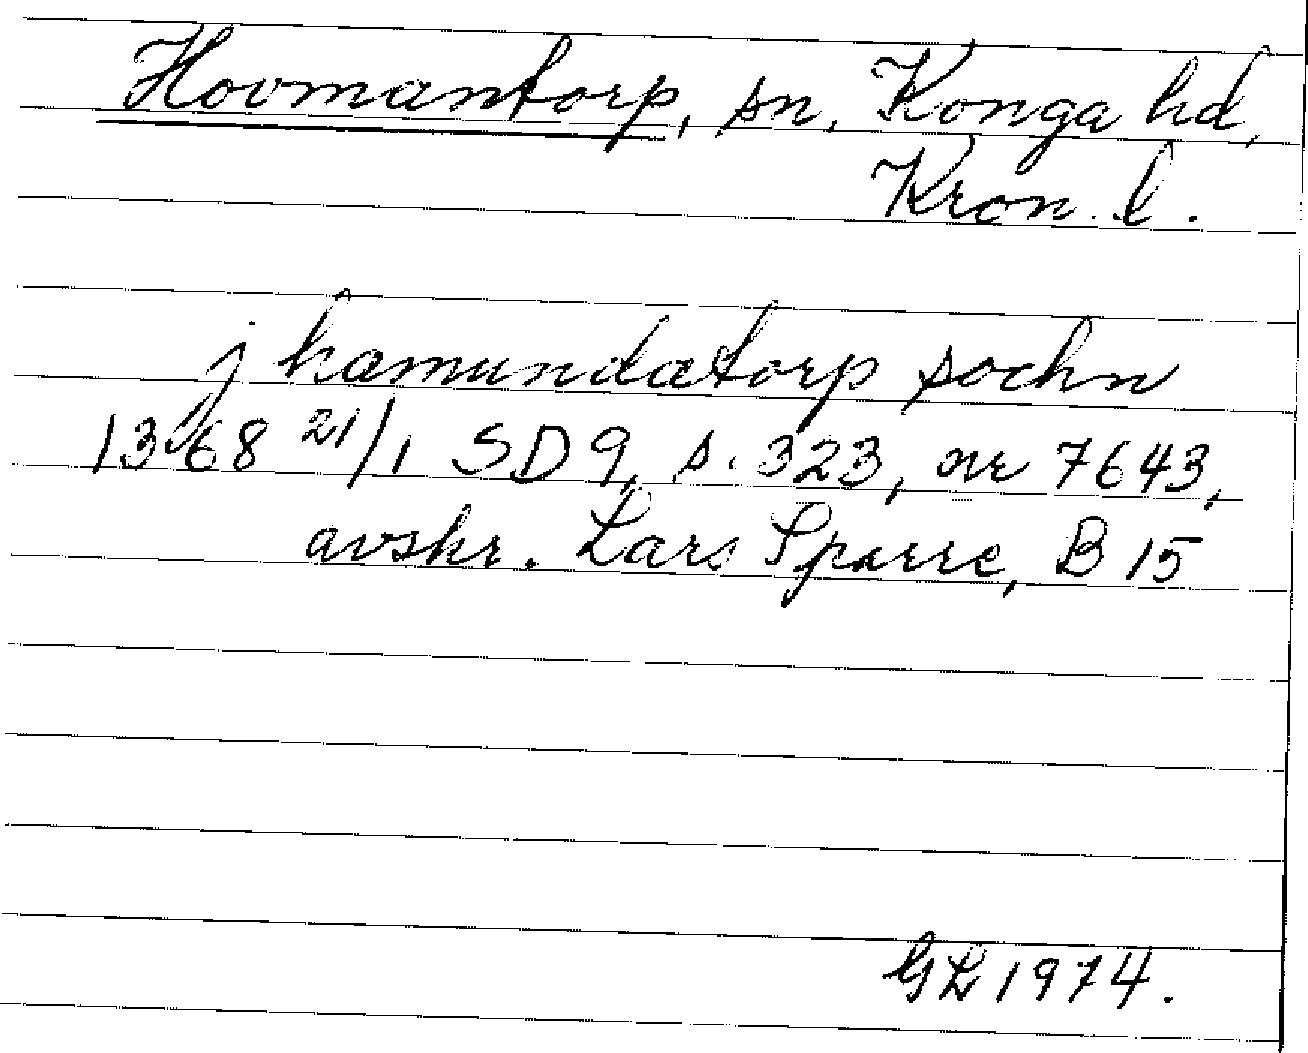 Hovmantorp, sn, Konga hd,
Kron. l.
j hamundatorp sochn
1368 21/1 SD 9, s. 323, nr 7643,
avskr. Lars Sparre, B 15
GL 1974.